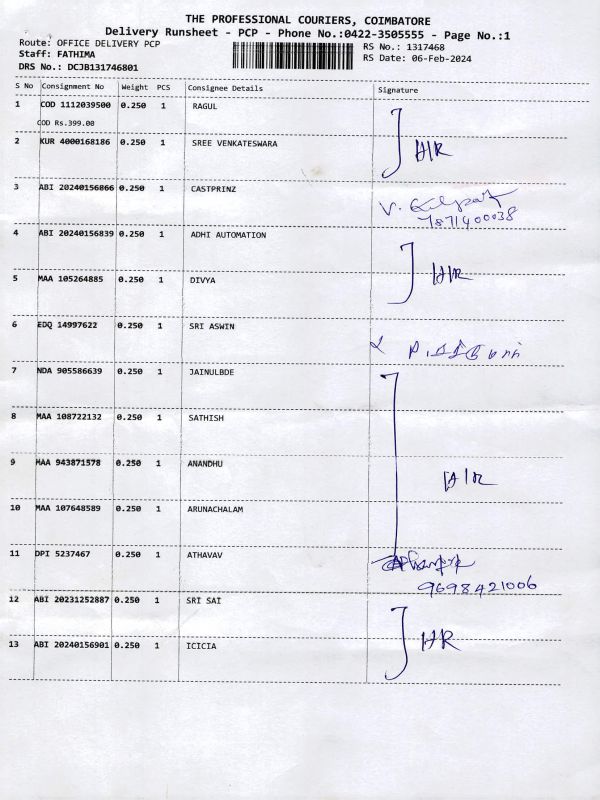 THE PROFESSIONAL COURIERS, COIMBATORE
Delivery Runsheet - PCP - Phone No.:0422-3505555 - Page No.:1
Route: OFFICE DELIVERY PCP
RS No.: 1317468
Staff: FATHIMA
RS Date: 06-Feb-2024
DRS No.: DCJB131746801
S No Consignment No Weight PCS Consignee Details Signature
1 COD 1112039500 0.250 1 RAGUL
COD Rs.399.00
2 KUR 4000168186 0.250 1 SREE VENKATESWARA
H/R
3 ABI 20240156866 0.250 1 CASTPRINZ
V.
7871400038
4 ABI 20240156839 0.250 1 ADHI AUTOMATION
5 MAA 105264885 0.250 1 DIVYA
H/R
6 EDQ 14997622 0.250 1 SRI ASWIN
7 NDA 905586639 0.250 1 JAINULBDE
8 MAA 108722132 0.250 1 SATHISH
9 MAA 943871578 0.250 1 ANANDHU
H/R
10 MAA 107648589 0.250 1 ARUNACHALAM
11 DPI 5237467 0.250 1 ATHAVAV
9698421006
12 ABI 20231252887 0.250 1 SRI SAI
13 ABI 20240156901 0.250 1 ICICIA
H/R